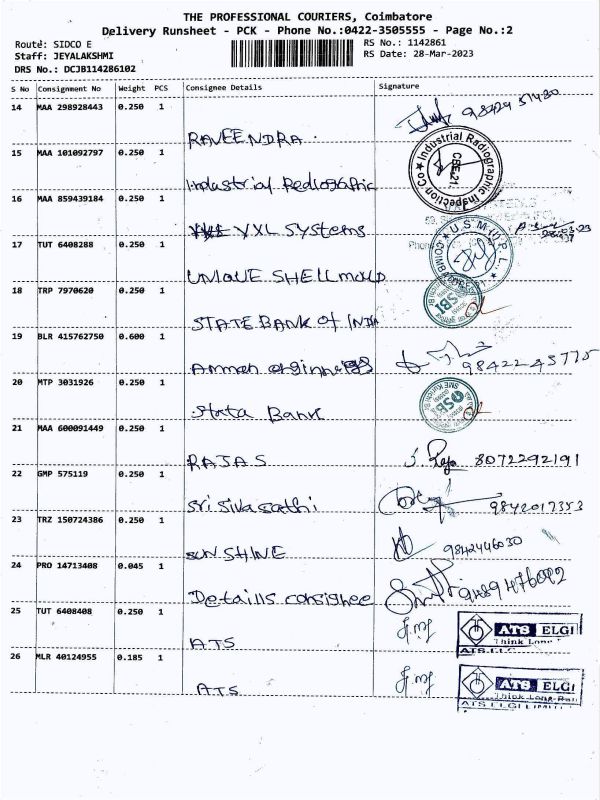 THE PROFESSIONAL COURIERS, Coimbatore
Delivery Runsheet - PCK - Phone No.:0422-3505555 - Page No.:2
Route: SIDCO E
RS No.: 1142861
Staff: JEYALAKSHMI
RS Date: 28-Mar-2023
DRS No.: DCJB114286102
S No Consignment No Weight PCS Consignee Details Signature
14 MAA 298928443 0.250 1
RAVEENDRA.
15 MAA 101092797 0.250 1
Industrial Rediographic
Industrial Radiographic Inspection Co
CBE.21.
16 MAA 859439184 0.250 1
VXL Systems
17 TUT 6408288 0.250 1
UNIQUE SHELL mould
U.S.M.(I)P.L.
COIMBATORE
18 TRP 7970620 0.250 1
STATE BANK of INDIA
SBI
19 BLR 415762750 0.600 1
Amman enginners
9842245775
20 MTP 3031926 0.250 1
State Bank
SBI
21 MAA 600091449 0.250 1
RAJAS
8072292191
22 GMP 575119 0.250 1
Sri Siva sathi
9842017353
23 TRZ 150724386 0.250 1
SUN SHINE
9842446030
24 PRO 14713408 0.045 1
Details consignee
9489476092
25 TUT 6408408 0.250 1
ATS
ATS ELGI
26 MLR 40124955 0.185 1
ATS
ATS ELGI
ATS ELGI LIMITED